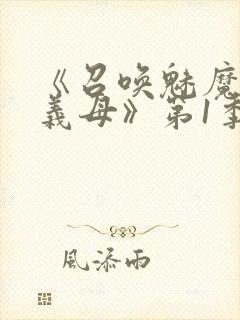 《召唤魅魔
義母》第1季
風添雨